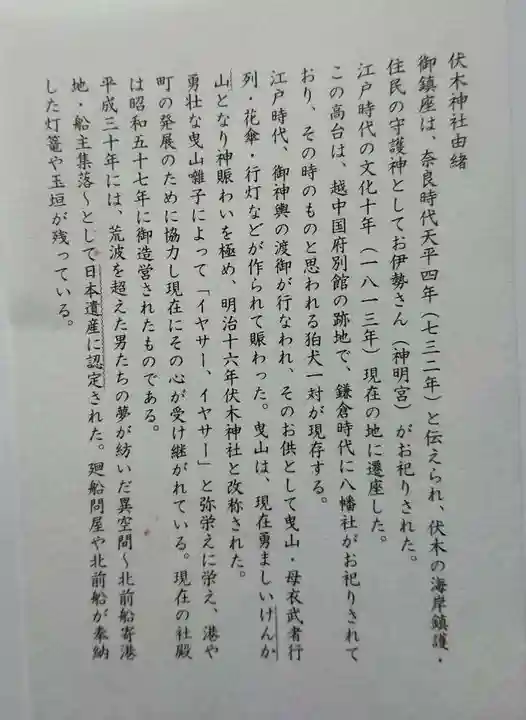 伏木神社由緒
御鎮座は、奈良時代天平四年（七三二年）と伝えられ、伏木の海岸鎮護・
住民の守護神としてお伊勢さん（神明宮）がお祀りされた。
江戸時代の文化十年（一八一三年）現在の地に遷座した。
この高台は、越中国府別館の跡地で、鎌倉時代に八幡社がお祀りされて
おり、その時のものと思われる狛犬一対が現存する。
江戸時代、御神輿の渡御が行なわれ、そのお供として曳山・母衣武者行
列・花傘・行灯などが作られて賑わった。曳山は、現在勇ましいけんか
山となり神賑わいを極め、明治十六年伏木神社と改称された。
勇壮な曳山囃子によって「イヤサー、イヤサー」と弥栄えに栄え、港や
町の発展のために協力し現在にその心が受け継がれている。現在の社殿
は昭和五十七年に御造営されたものである。
平成三十年には、荒波を超えた男たちの夢が紡いだ異空間～北前船寄港
地・船主集落～として日本遺産に認定された。廻船問屋や北前船が奉納
した灯篭や玉垣が残っている。